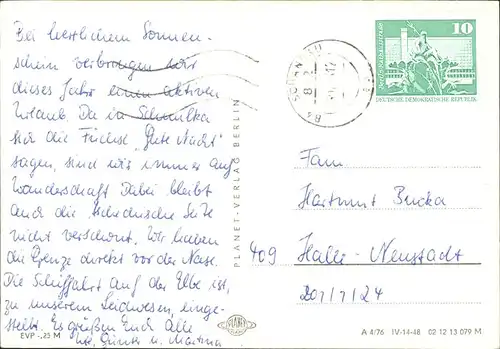 Bei herrlichem Sonnen-
schein verbringen wir
dieses Jahr einen aktiven
Urlaub. Da in Schmilka
sich die Füchse „Gute Nacht"
sagen, sind wir immer auf
Wanderschaft Dabei bleibt
auch die tschechische Seite
nicht verschont. Wir haben
die Grenze direkt vor der Nase.
Die Schiffahrt auf der Elbe ist,
zu unserem Leidwesen, einge-
stellt. Es grüßen Euch Alle
Günter u. Martina
EVP -,25 M
PLANET-VERLAG BERLIN
PLANET
10
DEUTSCHE DEMOKRATISCHE REPUBLIK
Fam
Hartmut
409 Halle-Neustadt
207/7/24
A 4/76 IV-14-48 02 12 13 079 M